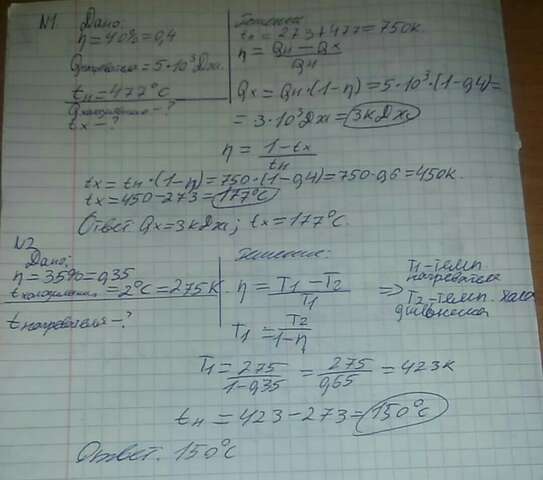 N1. Дано:
η = 40% = 0,4
Qнагревателя = 5·10³ Дж.
tн = 477°C
Qхолодильника - ?
tх - ?
Решение
tн = 273 + 477 = 750К.
η = Qн - Qх / Qн
Qх = Qн·(1-η) = 5·10³·(1-0,4) =
= 3·10³ Дж = 3кДж
η = 1 - tх / tн
tх = tн·(1-η) = 750·(1-0,4) = 750·0,6 = 450К.
tх = 450 - 273 = 177°C
Ответ Qх = 3кДж; tх = 177°C.
N2
Дано:
η = 35% = 0,35
tхолодильника = 2°C = 275К.
tнагревателя - ?
Решение:
η = T1 - T2 / T1 ⇒ T1 - темп. нагревателя
T2 - темп. холодильника
T1 = T2 / 1-η
T1 = 275 / 1-0,35 = 275 / 0,65 = 423К
tн = 423 - 273 = 150°C
Ответ. 150°C